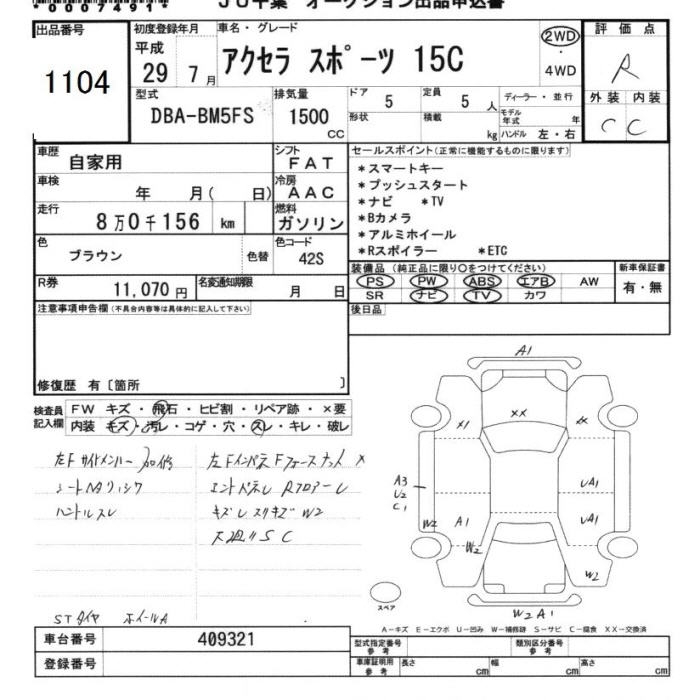 *00074914*
JU千葉 オークション出品申込書
出品番号 1104
初度登録年月 平成 29 7 月
車名・グレード アクセラ スポーツ 15C
2WD ・ 4WD
評価点 R
外装 内装 C C
型式 DBA-BM5FS
排気量 1500 CC
ドア 5
定員 5 人
ディーラー・並行
形状
積載 kg
モデル年式 年
ハンドル 左・右
車歴 自家用
シフト FAT
車検 年 月( 日)
冷房 AAC
走行 8万0千156 km
燃料 ガソリン
色 ブラウン 色替
色コード 42S
R券 11,070 円
名変通知期限 月 日
セールスポイント(正常に機能するものに限ります)
*スマートキー
*プッシュスタート
*ナビ *TV
*Bカメラ
*アルミホイール
*Rスポイラー *ETC
装備品 (純正品に限り○をつけてください)
PS PW ABS エアB AW
SR ナビ TV カワ
新車保証書 有・無
後日品
注意事項申告欄(不具合内容等は具体的に記入して下さい)
修復歴 有〔箇所 〕
検査員記入欄
FW キズ・飛石・ヒビ割・リペア跡・×要
内装 キズ・汚レ・コゲ・穴・スレ・キレ・破レ
左Fサイドメンバー
左Fインパネ
ハンドルスレ
キズレスリキズ W2
S C
STタイヤ ホイールA
A1
XX
X1
XX
A3
U2
C1
UA1
UA1
W2
A1
W2
W2
W2 A1
スペア
A-キズ E-エクボ U-凹み W-補修跡 S-サビ C-腐食 XX-交換済
車台番号 409321
登録番号
型式指定番号 参考
類別区分番号 参考
車庫証明用 参考
長さ cm
幅 cm
高さ cm